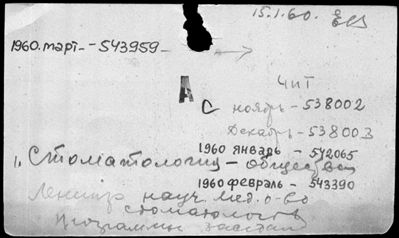 15.1.60.
1960.март - 543959
Чит
А
С ноябрь - 538002
Декабрь - 538003
1960 январь - 542065
"Стоматология - общества
1960 февраль - 543390
Ленингр науч мед. о-во
стоматологов
Программы заседаний